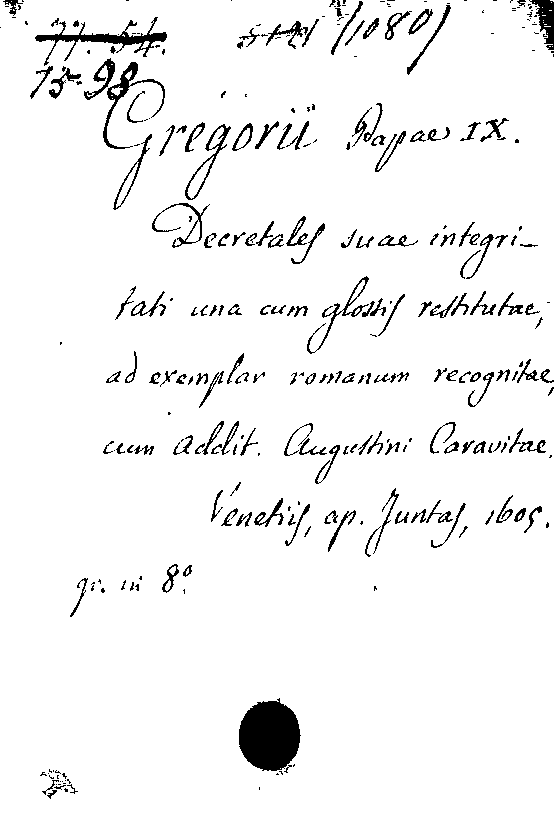 77. 54. 5121 (1080)
75-98
Gregorii Papae IX.
Decretales suae integri-
tati una cum glossis restitutae,
ad exemplar romanum recognitae,
cum addit. Augustini Caravitae.
Venetiis, ap. Juntas, 1605.
gr. in 8º.